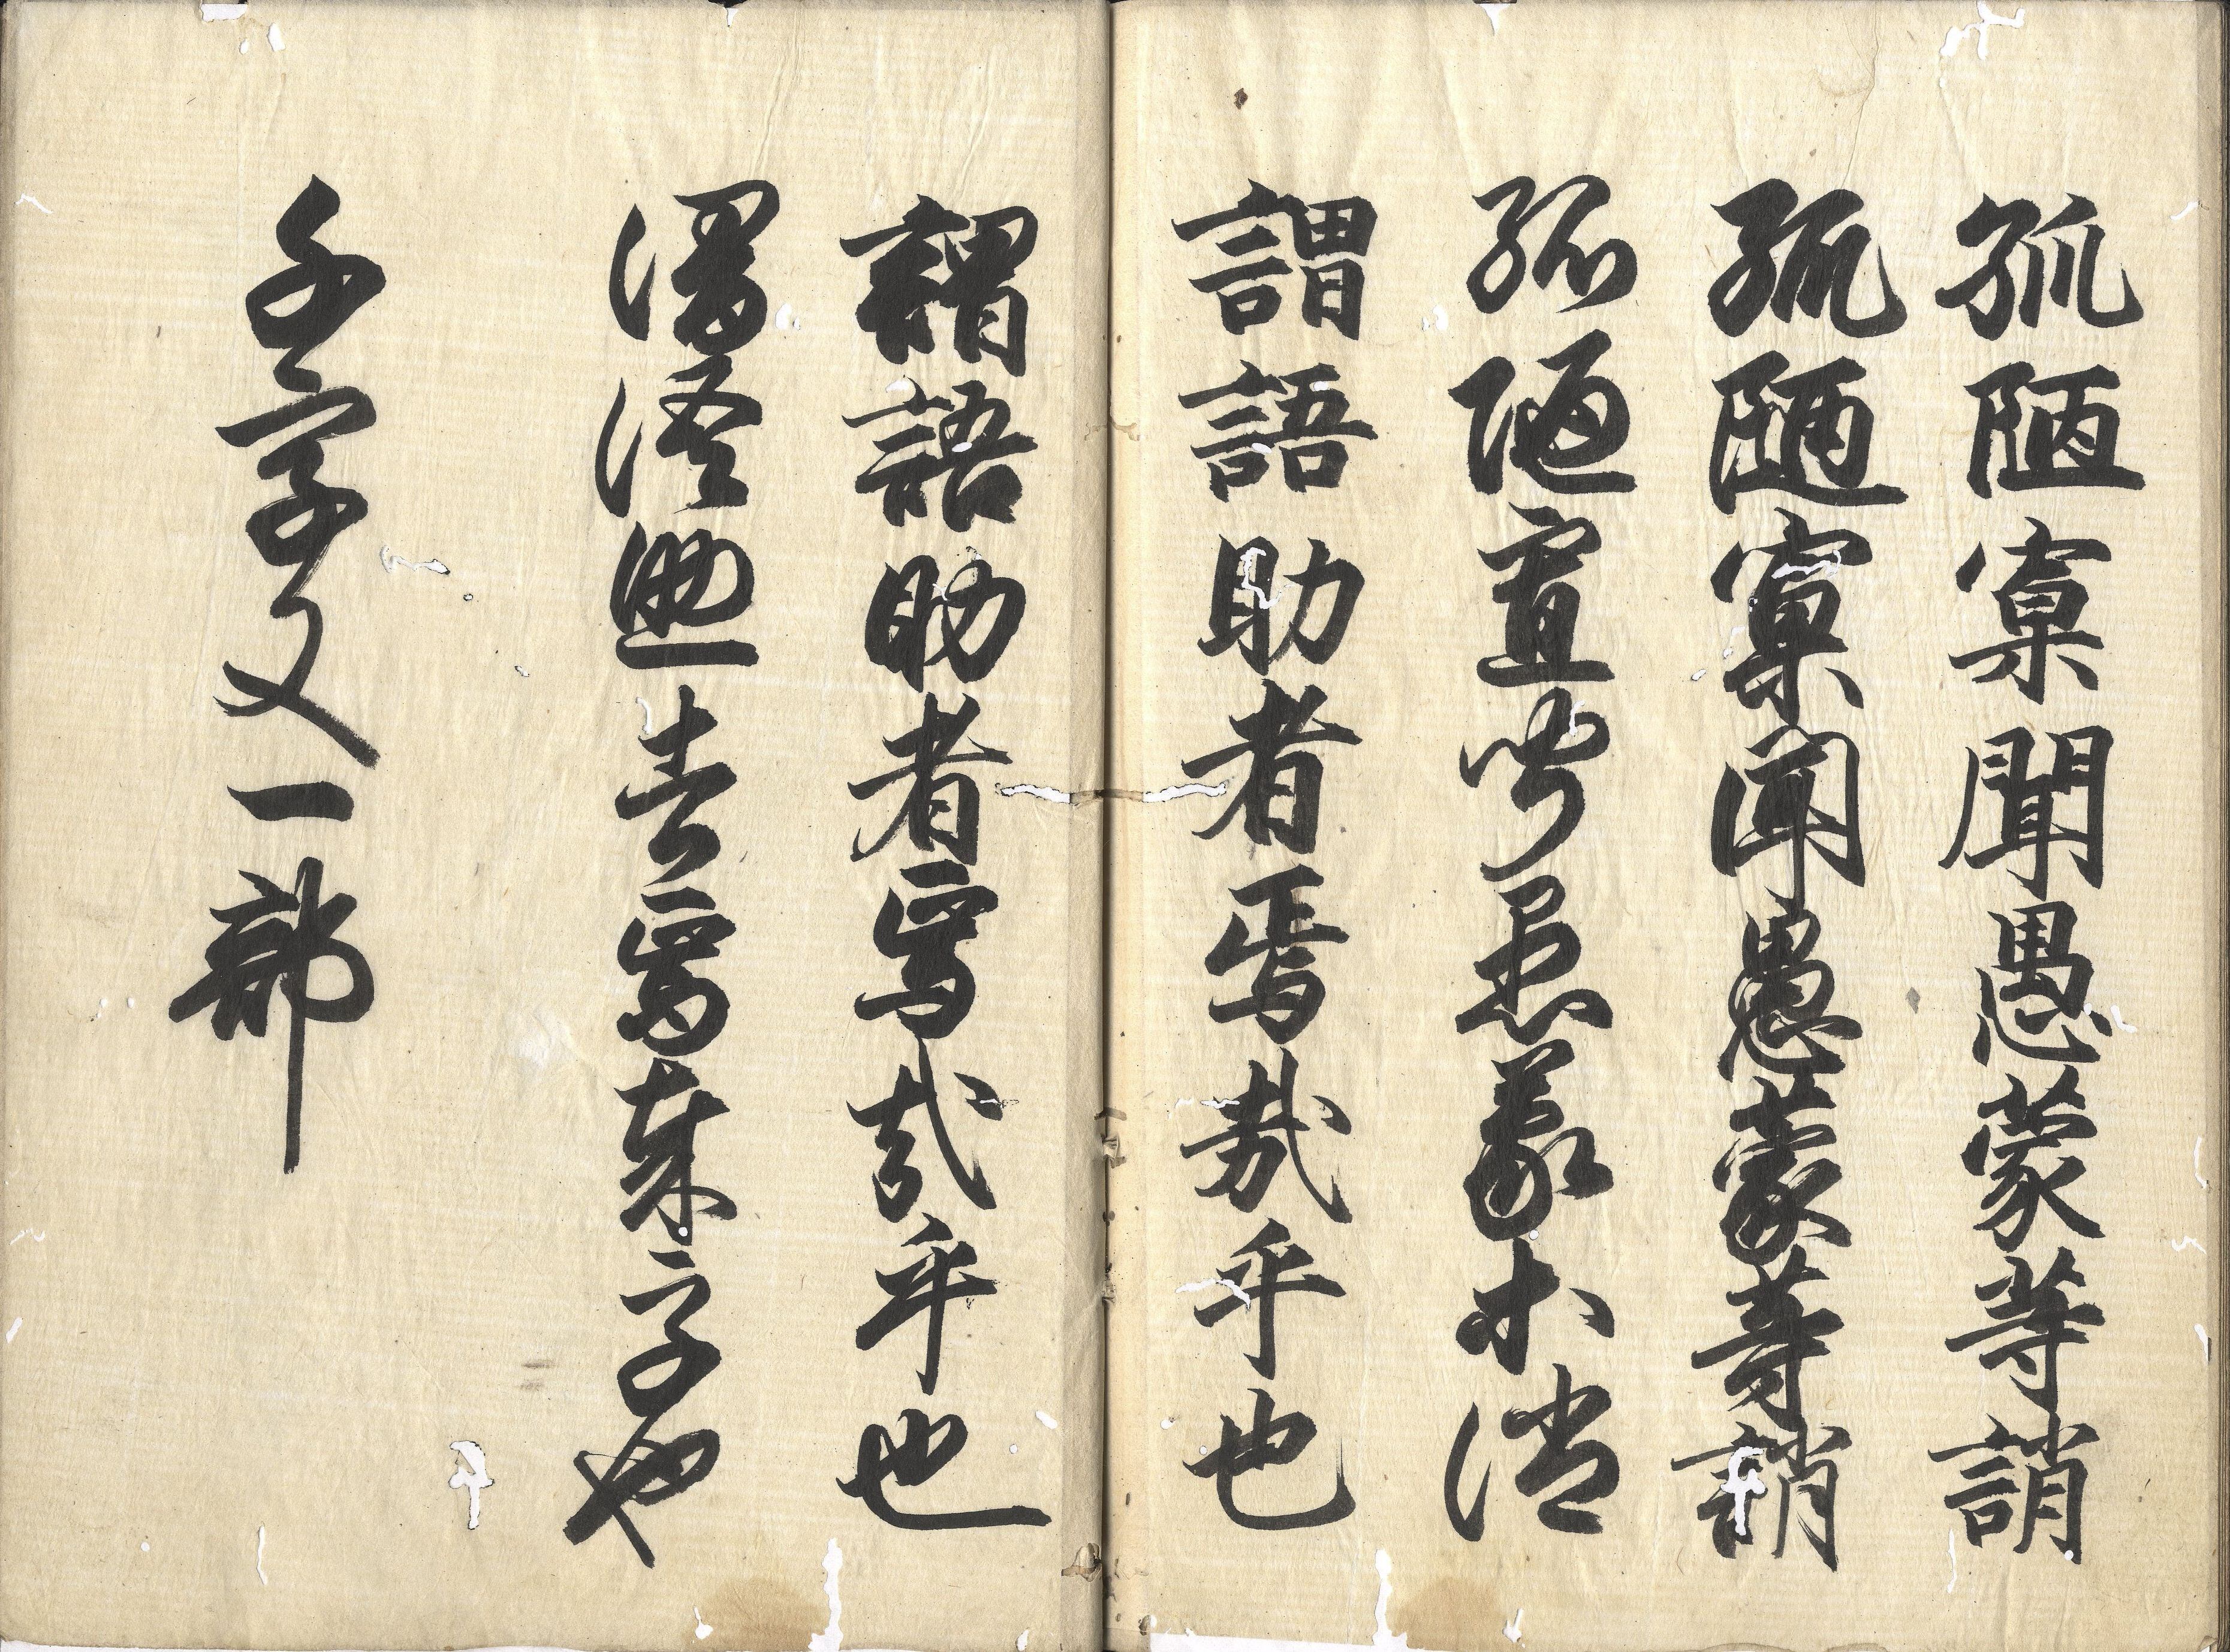 孤陋寡聞愚蒙等誚
孤陋寡聞愚蒙等誚
孤陋寡聞愚蒙等誚
謂語助者焉哉乎也
謂語助者焉哉乎也
謂語助者焉哉乎也
千字文一部